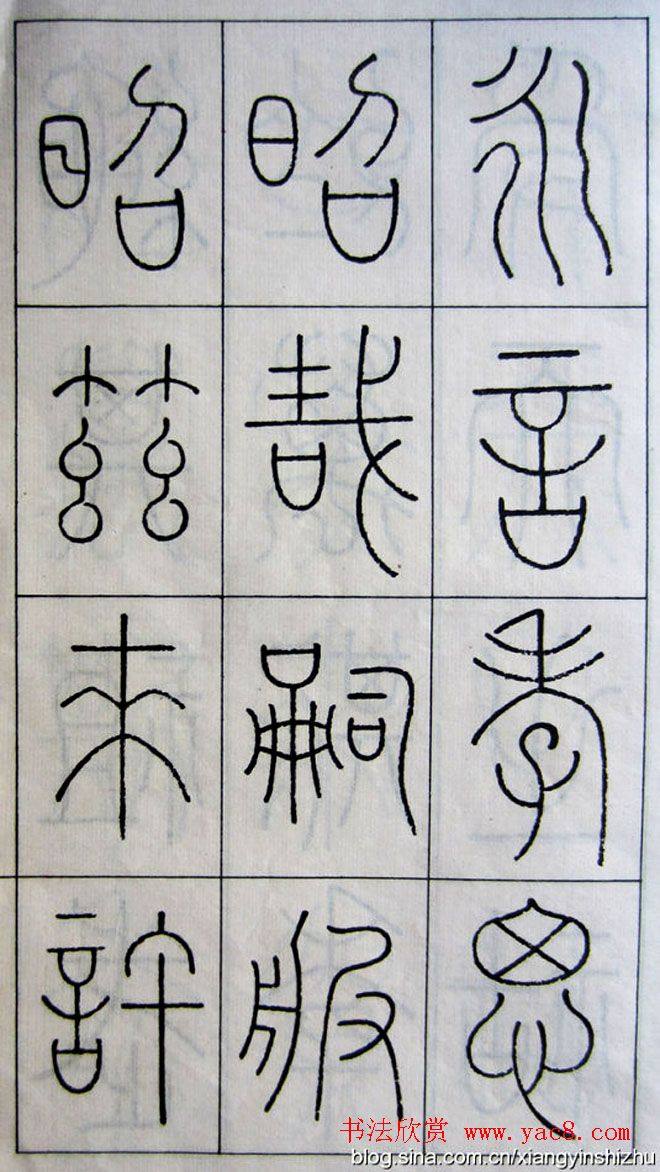 永言孝思
昭哉嗣服
昭茲來許
书法欣赏 www.yac8.com
blog.sina.com.cn/xiangyinshizhu